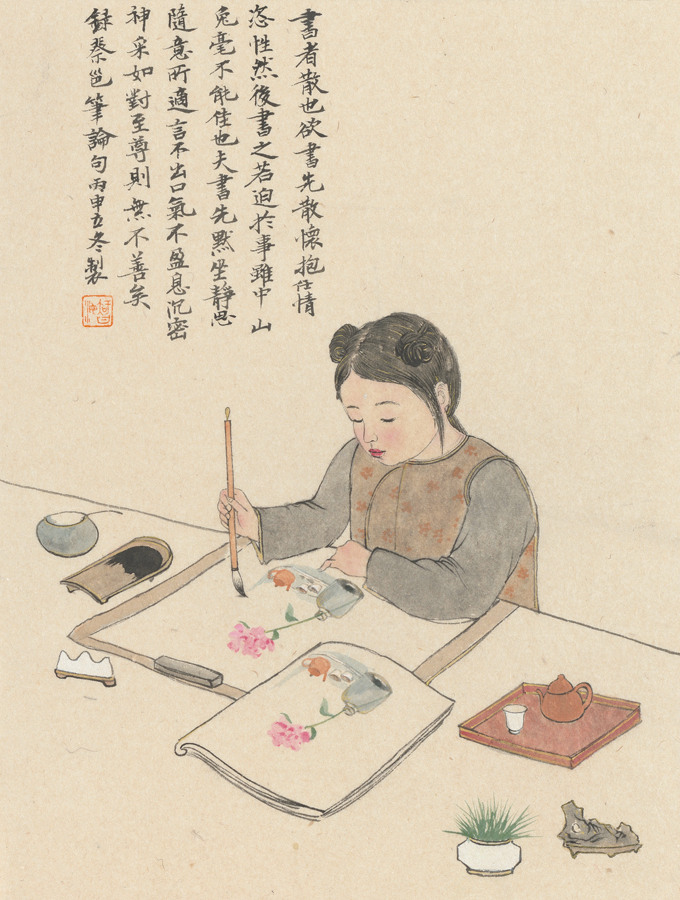 書者散也欲書先散懷抱任情
恣性然後書之若迫於事雖中山
兔毫不能佳也夫書先默坐靜思
隨意所適言不出口氣不盈息沉密
神采如對至尊則無不善矣
錄蔡邕筆論句丙申立冬製